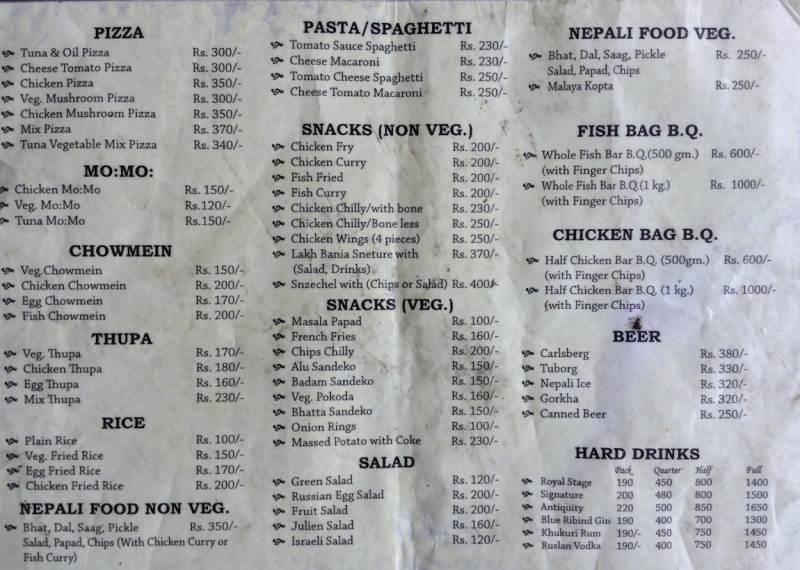 PIZZA
Tuna & Oil Pizza Rs. 300/-
Cheese Tomato Pizza Rs. 300/-
Chicken Pizza Rs. 350/-
Veg. Mushroom Pizza Rs. 300/-
Chicken Mushroom Pizza Rs. 350/-
Mix Pizza Rs. 370/-
Tuna Vegetable Mix Pizza Rs. 340/-
MO:MO:
Chicken Mo:Mo Rs. 150/-
Veg. Mo:Mo Rs.120/-
Tuna Mo:Mo Rs.150/-
CHOWMEIN
Veg.Chowmein Rs. 150/-
Chicken Chowmein Rs. 200/-
Egg Chowmein Rs. 170/-
Fish Chowmein Rs. 200/-
THUPA
Veg. Thupa Rs. 170/-
Chicken Thupa Rs. 180/-
Egg Thupa Rs. 160/-
Mix Thupa Rs. 230/-
RICE
Plain Rice Rs. 100/-
Veg. Fried Rice Rs. 150/-
Egg Fried Rice Rs. 170/-
Chicken Fried Rice Rs. 200/-
NEPALI FOOD NON VEG.
Bhat, Dal, Saag, Pickle Rs. 350/-
Salad, Papad, Chips (With Chicken Curry or
Fish Curry)
PASTA/SPAGHETTI
Tomato Sauce Spaghetti Rs. 230/-
Cheese Macaroni Rs. 230/-
Tomato Cheese Spaghetti Rs. 250/-
Cheese Tomato Macaroni Rs. 250/-
SNACKS (NON VEG.)
Chicken Fry Rs. 200/-
Chicken Curry Rs. 200/-
Fish Fried Rs. 200/-
Fish Curry Rs. 200/-
Chicken Chilly/with bone Rs. 230/-
Chicken Chilly/Bone less Rs. 250/-
Chicken Wings (4 pieces) Rs. 250/-
Lakh Bania Sneture with Rs. 370/-
(Salad, Drinks)
Snzechel with (Chips or Salad) Rs. 400/-
SNACKS (VEG.)
Masala Papad Rs. 100/-
French Fries Rs. 160/-
Chips Chilly Rs. 200/-
Alu Sandeko Rs. 150/-
Badam Sandeko Rs. 150/-
Veg. Pokoda Rs. 160/-
Bhatta Sandeko Rs. 150/-
Onion Rings Rs. 100/-
Massed Potato with Coke Rs. 230/-
SALAD
Green Salad Rs. 120/-
Russian Egg Salad Rs. 200/-
Fruit Salad Rs. 200/-
Julien Salad Rs. 160/-
Israeli Salad Rs. 120/-
NEPALI FOOD VEG.
Bhat, Dal, Saag, Pickle Rs. 250/-
Salad, Papad, Chips
Malaya Kopta Rs. 250/-
FISH BAG B.Q.
Whole Fish Bar B.Q.(500 gm.) Rs. 600/-
(with Finger Chips)
Whole Fish Bar B.Q.(1 kg.) Rs. 1000/-
(with Finger Chips)
CHICKEN BAG B.Q.
Half Chicken Bar B.Q. (500gm.) Rs. 600/-
(with Finger Chips)
Half Chicken Bar B.Q. (1 kg.) Rs. 1000/-
(with Finger Chips)
BEER
Carlsberg Rs. 380/-
Tuborg Rs. 330/-
Nepali Ice Rs. 320/-
Gorkha Rs. 320/-
Canned Beer Rs. 250/-
HARD DRINKS
Pack Quarter Half Full
Royal Stage 190 450 800 1400
Signature 200 480 800 1500
Antiquity 220 500 850 1650
Blue Ribind Gin 190 400 700 1300
Khukuri Rum 190/- 450 750 1450
Ruslan Vodka 190/- 400 750 1450